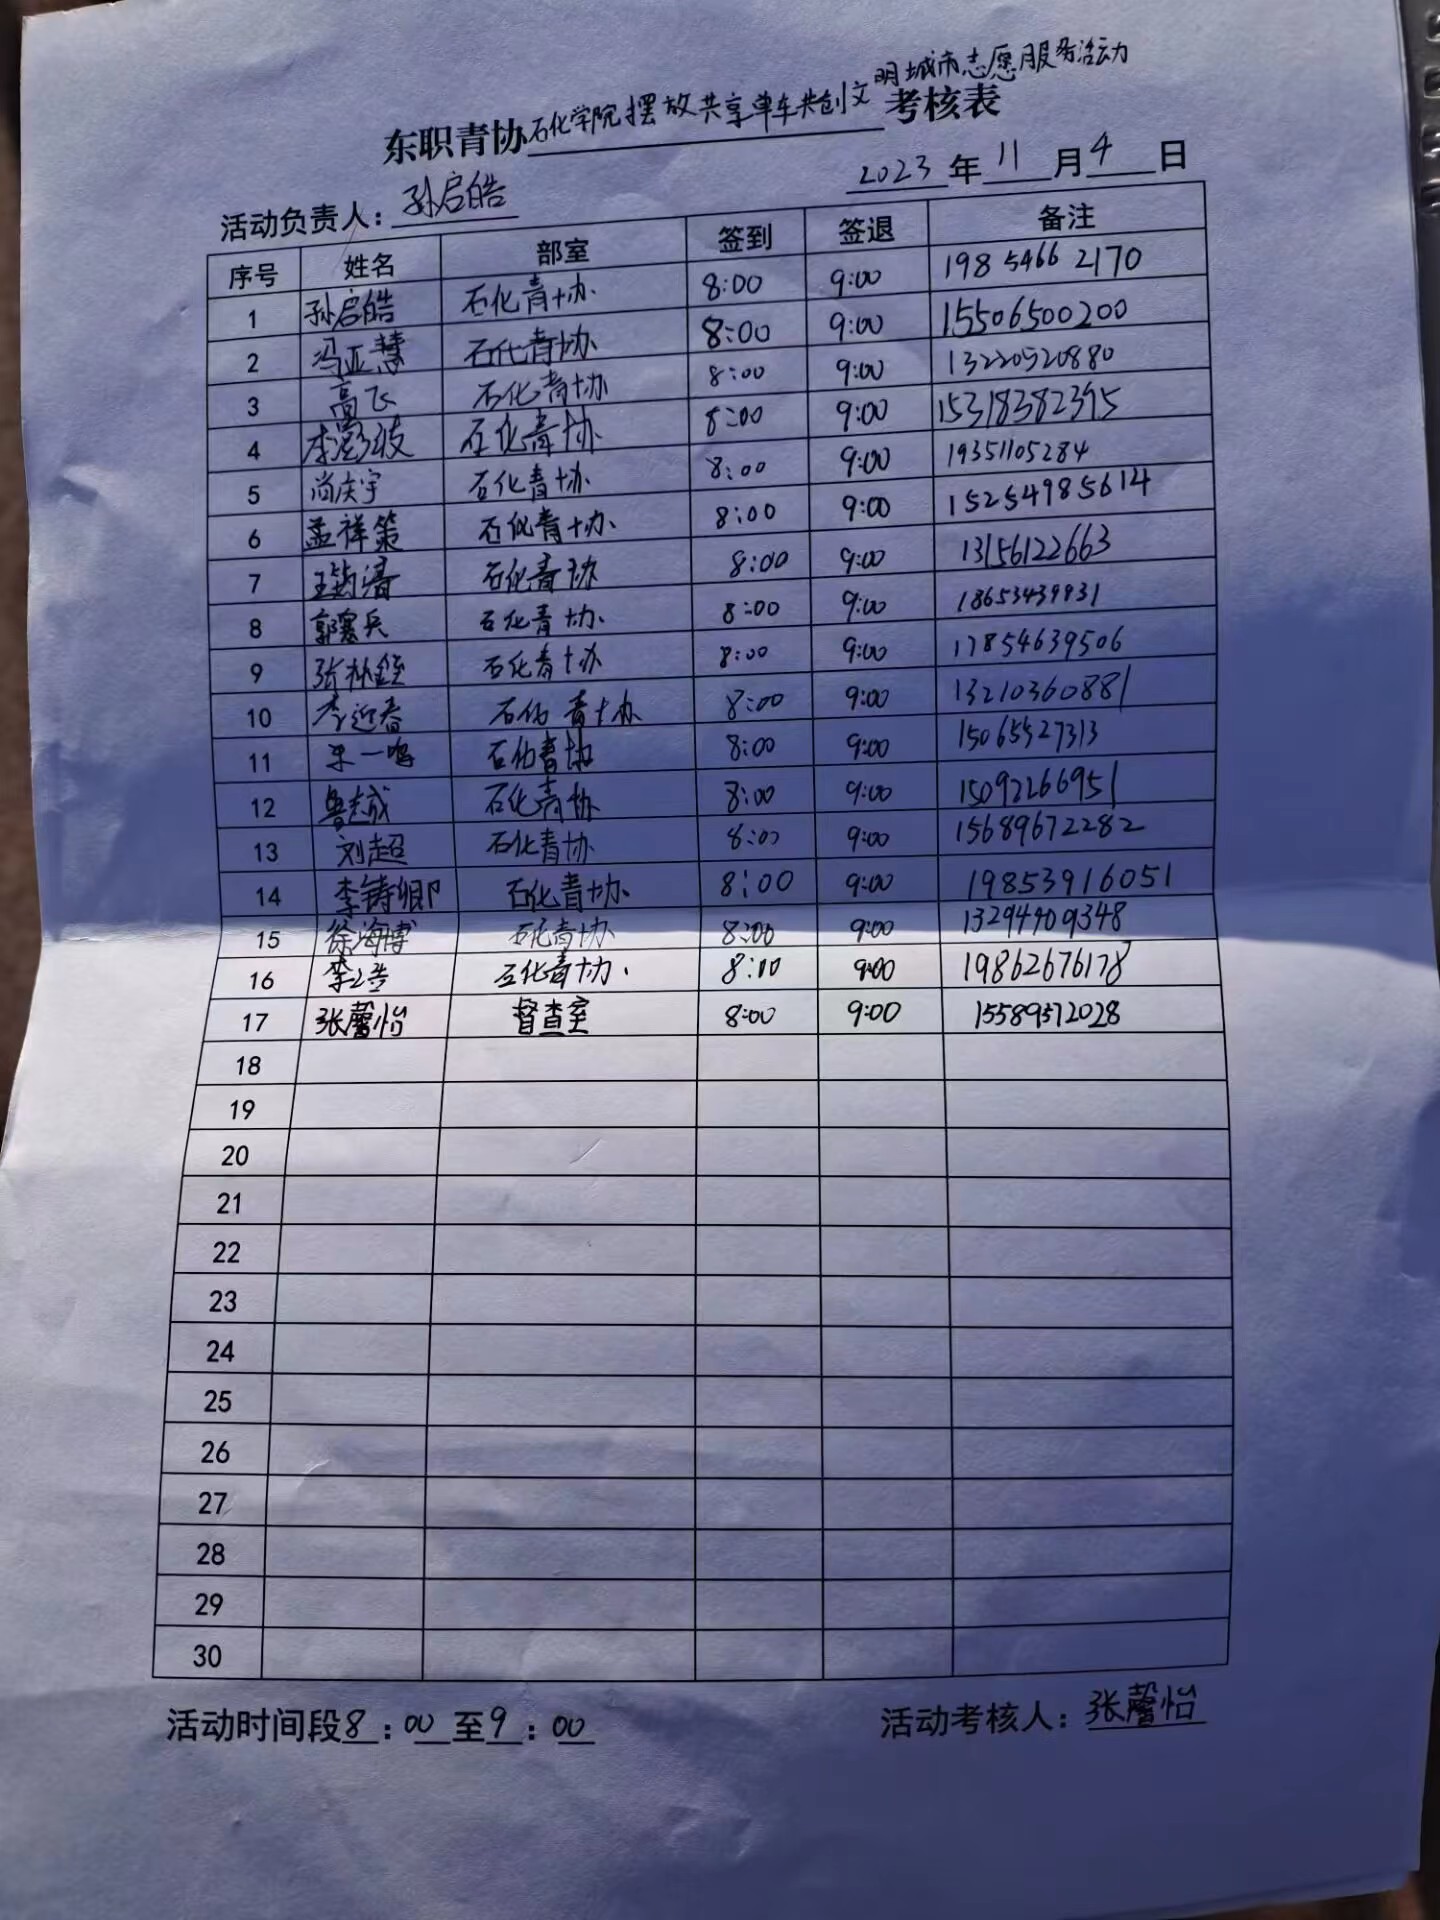 明城市志愿服务活动
东职青协石化学院摆放共享单车共创文考核表
2023年11月4日
活动负责人：孙启皓
序号 姓名 部室 签到 签退 备注
1 孙启皓 石化青协 8:00 9:00 198 5466 2170
2 冯亚慧 石化青协 8:00 9:00 15506500200
3 高飞 石化青协 8:00 9:00 13220520880
4 石化青协 8:00 9:00 15318382395
5 尚庆宇 石化青协 8:00 9:00 19351105284
6 孟祥策 石化青协 8:00 9:00 15254985614
7 石化青协 8:00 9:00 13156122663
8 石化青协 8:00 9:00
9 石化青协 8:00 9:00 17854639506
10 李迎春 石化青协 8:00 9:00 13210360881
11 石化青协 8:00 9:00 15065527313
12 鲁志成 石化青协 8:00 9:00 15092266951
13 刘超 石化青协 8:00 9:00 15689672282
14 李铸卿 石化青协 8:00 9:00 19853916051
15 徐海博 石化青协 8:00 9:00 13294909348
16 石化青协 8:00 9:00 19862676178
17 张馨怡 督查室 8:00 9:00 15589512028
18
19
20
21
22
23
24
25
26
27
28
29
30
活动时间段8:00至9:00 活动考核人：张馨怡